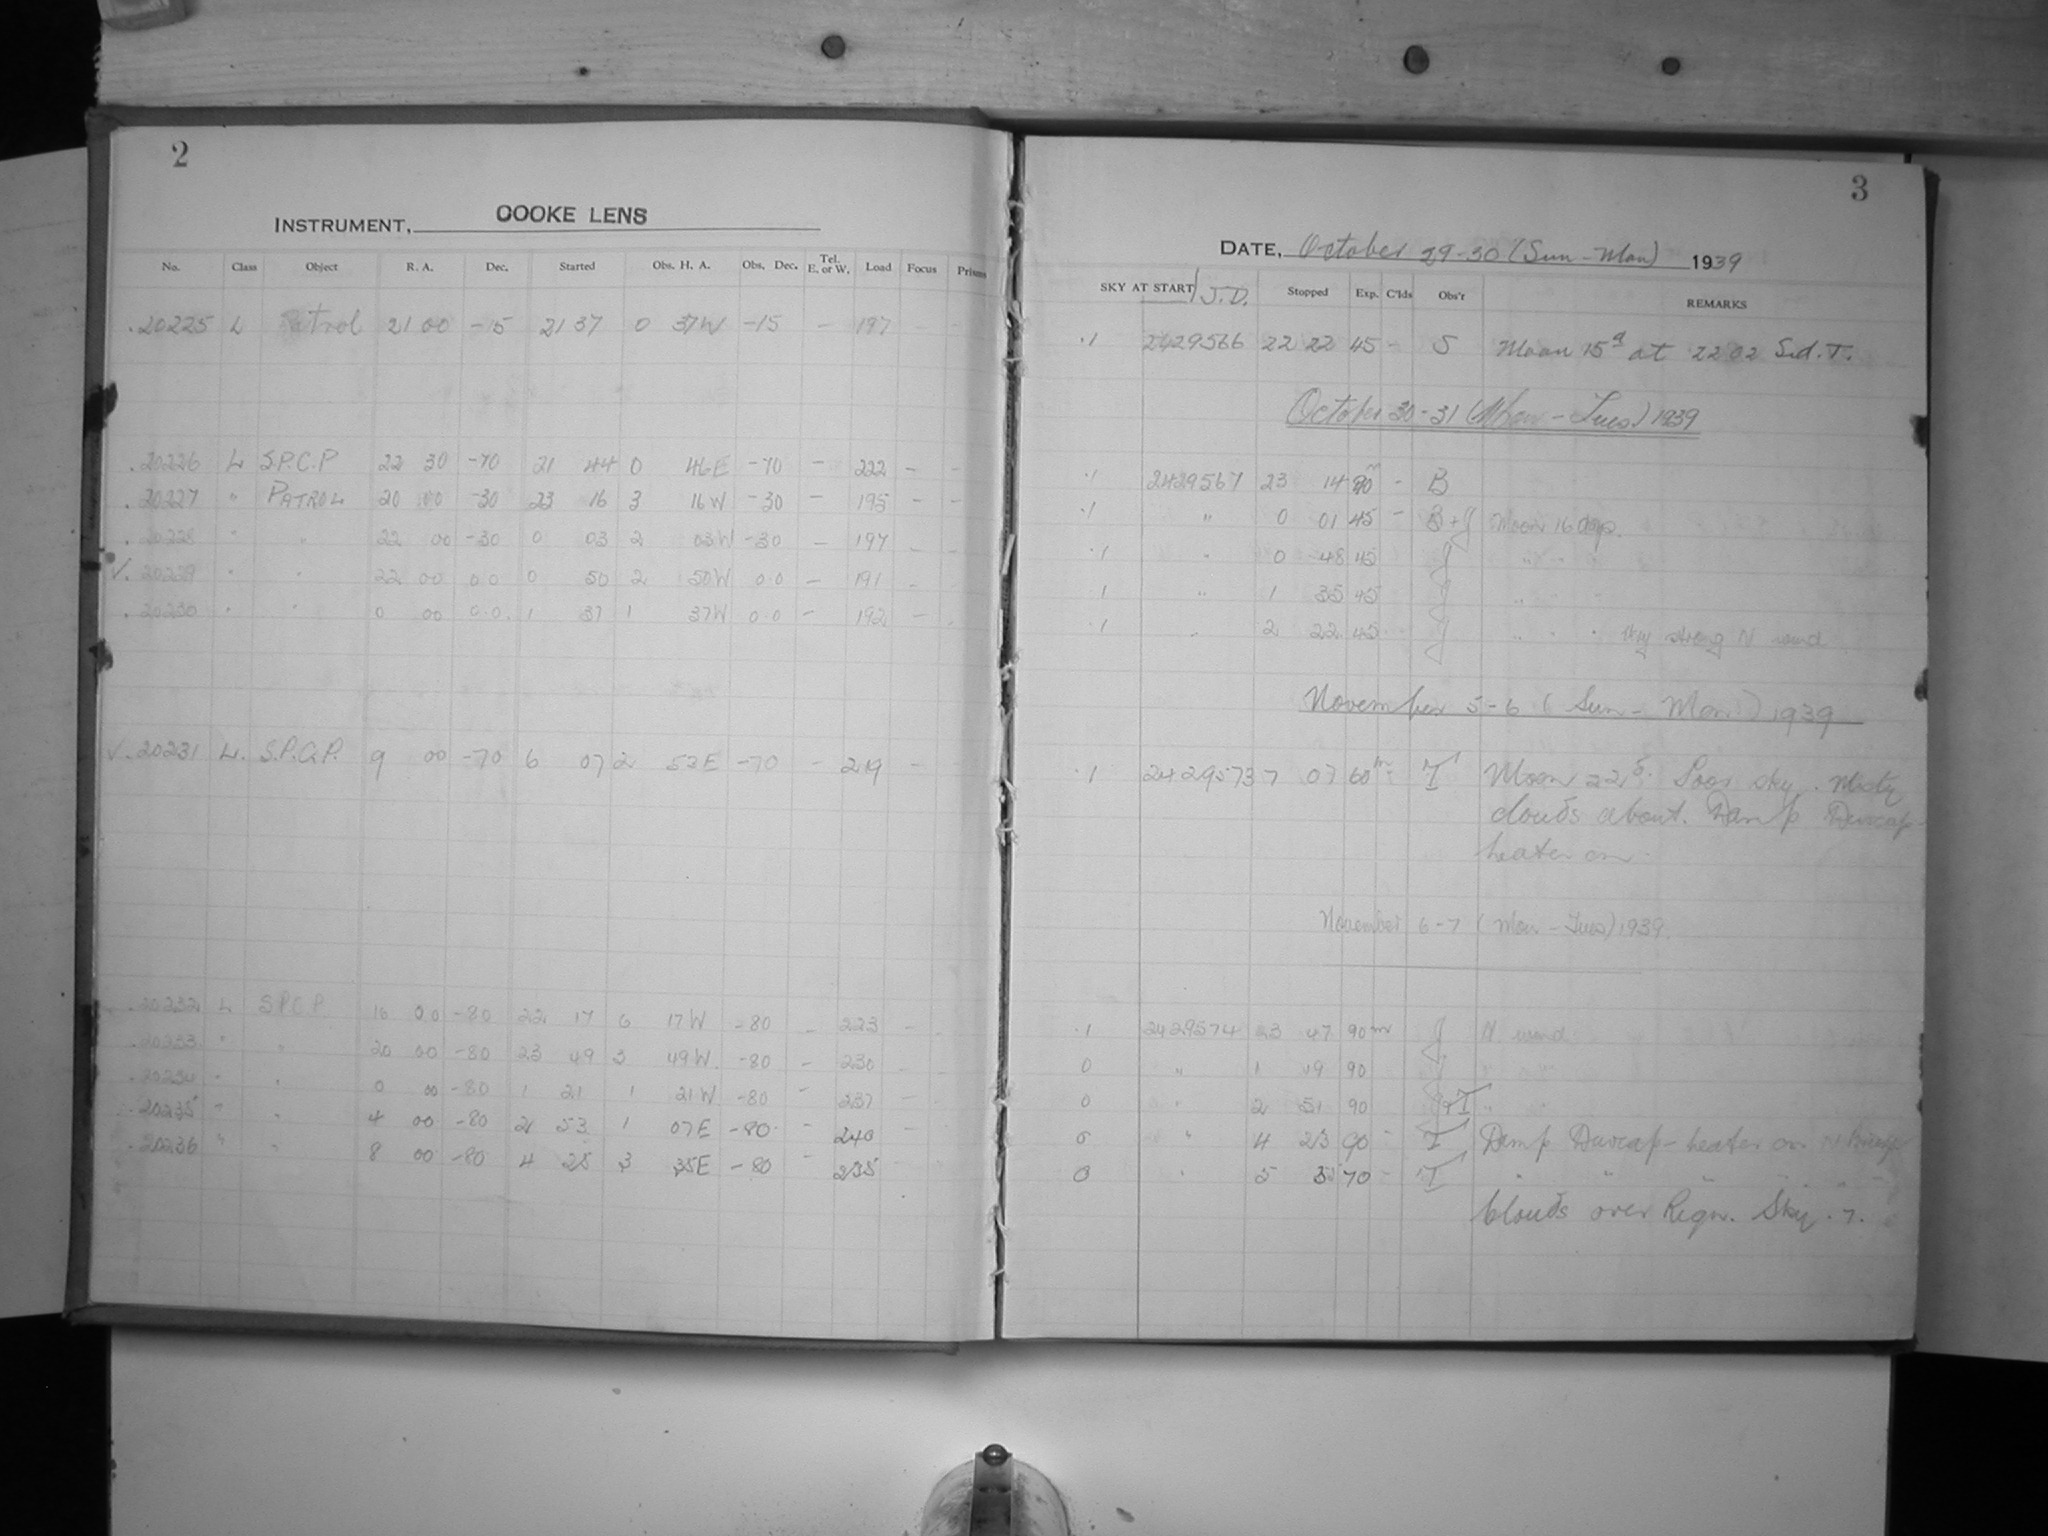 2
INSTRUMENT, COOKE LENS
No. Class Object R. A. Dec. Started Obs. H. A. Obs. Dec. Tel. E. or W. Load Focus Prisms
.20225 L Patrol 21 00 -15 21 37 0 37W -15 - 197
.20226 L S.P.C.P 22 30 -70 21 44 0 46E -70 - 222 - -
.20227 " PATROL 20 00 -30 23 16 3 16W -30 - 195 - -
.20228 " " 22 00 -30 0 03 2 03W -30 - 197 - -
✓.20229 " " 22 00 00 0 50 2 50W 00 - 191 - -
.20230 " " 0 00 0.0. 1 37 1 37W 00 - 192 - -
✓.20231 L. S.P.C.P. 9 00 -70 6 07 2 53E -70 - 219 -
.20232 L S.P.C.P. 16 00 -80 22 17 6 17W -80 - 223 -
.20233 " " 20 00 -80 23 49 3 49W. -80 - 230 -
.20234 " " 0 00 -80 1 21 1 21W -80 - 237 -
.20235 " " 4 00 -80 2 53 1 07E -80 - 240 -
.20236 " " 8 00 -80 4 25 3 35E -80 - 235 -
3
DATE, October 29-30 (Sun-Mon) 1939
SKY AT START J.D. Stopped Exp. C'lds Obs'r REMARKS
.1 2429566 22 22 45 - S Moon 15d at 22 02 Sid. T.
October 30-31 (Mon-Tues) 1939
.1 2429567 23 14 90m - B
.1 " 0 01 45 - B+J Moon 16 days.
.1 " 0 48 45 J " " "
.1 " 1 35 45 J " " "
.1 " 2 22 45 J " " " Very strong N wind
November 5-6 (Sun-Mon.) 1939
.1 2429573 7 07 60m - T Moon 22d. Poor sky. Misty
clouds about. Damp Dewcap-
heater on.
November 6-7 (Mon-Tues) 1939.
.1 2429574 23 47 90m J N. wind
0 " 1 19 90 J " "
0 " 2 51 90 J+T " "
0 " 4 23 90 - T Damp Dewcap-heater on N
0 " 5 35 70 - T " " " "
Clouds over Regn. Sky .7.